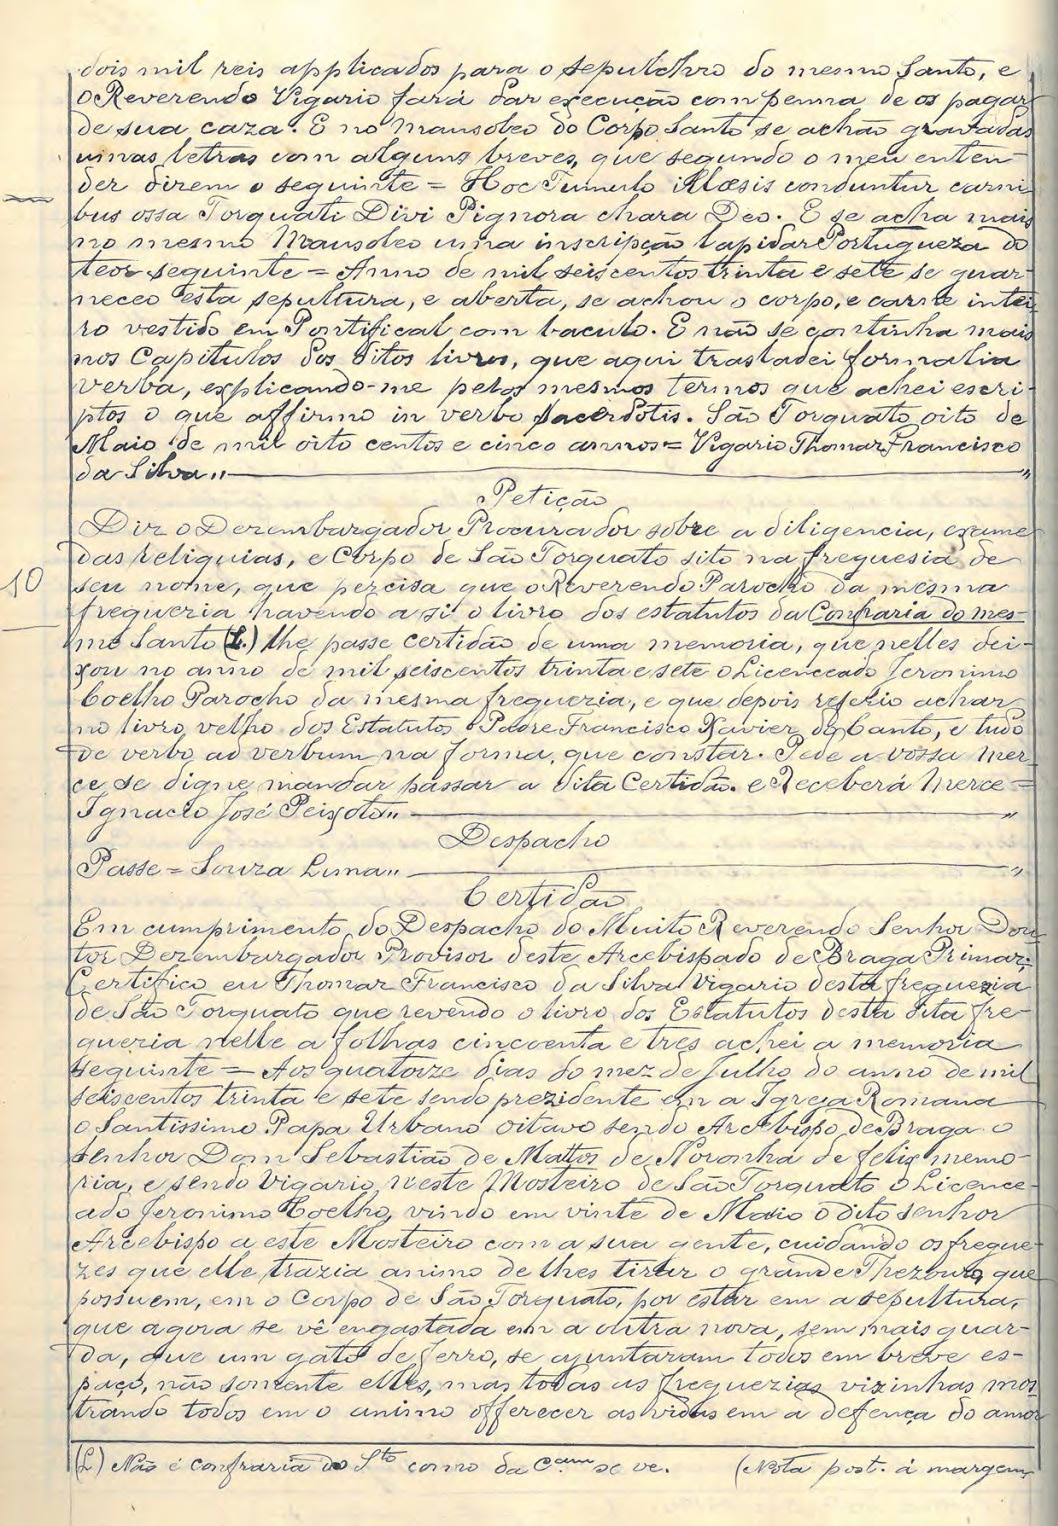 dois mil reis applicados para o sepulchro do mesmo Santo, e
o Reverendo Vigario fará dar execução com penna de os pagar
de sua caza. E no Mausoleo do Corpo Santo se achão gravadas
umas letras com alguns breves, que segundo o meu enten-
der dizem o seguinte = Hoc Tumulo illæsis conduntur carni-
bus ossa Torquati Divi Pignora chara Deo. E se acha mais
no mesmo Mausoleo uma inscripção lapidar Portugueza do
teor seguinte = Anno de mil seiscentos trinta e sete se guar-
neceo esta sepultura, e aberta, se achou o corpo, e carne intei-
ro vestido em Pontifical com baculo. E não se continha mais
nos Capitulos dos ditos livros, que aqui trasladei formalia
verba, explicando-me pelos mesmos termos que achei escri-
ptos o que affirmo in verbo sacerdotis. São Torquato oito de
Maio de mil oito centos e cinco annos = Vigario Thomaz Francisco
da Silva,,
Petição
Diz o Dezembargador Procurador sobre a diligencia, exame
das reliquias, e Corpo de São Torquato sito na freguesia de
10
seu nome, que percisa que o Reverendo Parocho da mesma
freguezia havendo a si o livro dos estatutos da Confraria do mes-
mo Santo (L.) lhe passe certidão de uma memoria, que nelles dei-
xou no anno de mil seiscentos trinta e sete o Licenceado Jeronimo
Coelho Parocho da mesma freguezia, e que depois referio achar
no livro velho dos Estatutos o Padre Francisco Xavier do Canto, e tudo
de verbo ad verbum na forma, que constar. Pede a vossa Mer-
ce se digne mandar passar a dita Certidão. e Receberá Merce =
Ignacio José Peixoto,,
Despacho
Passe = Souza Lima,,
Certidão
Em cumprimento do Despacho do Muito Reverendo Senhor Dou-
tor Dezembargador Provisor deste Arcebispado de Braga Primaz;
Certifico eu Thomaz Francisco da Silva Vigario desta freguezia
de São Torquato que revendo o livro dos Estatutos desta dita fre-
guezia nelle a folhas cincoenta e tres achei a memoria
seguinte = Aos quatorze dias do mez de Julho do anno de mil
seiscentos trinta e sete sendo prezidente em a Igreja Romana
o Santissimo Papa Urbano oitavo sendo Arcebispo de Braga o
senhor Dom Sebastião de Mattos de Noronha de felix memo-
ria, e sendo Vigario neste Mosteiro de São Torquato o Licence-
ado Jeronimo Coelho, vindo em vinte de Maio o dito senhor
Arcebispo a este Mosteiro com a sua gente, cuidando os fregue-
zes que elle trazia animo de lhes tirar o grande Thezouro, que
possuem, em o Corpo de São Torquato, por estar em a sepultura,
que agora se vê engastada em a outra nova, sem mais guar-
da, que um gato de ferro, se ajuntaram todos em breve es-
paço, não somente elles, mas todas as freguezias vizinhas mos-
trando todos em o animo offerecer as vidas em a defença do amor
(L) Não é confraria do Sto como da Cam se ve. (Nota post. á margem